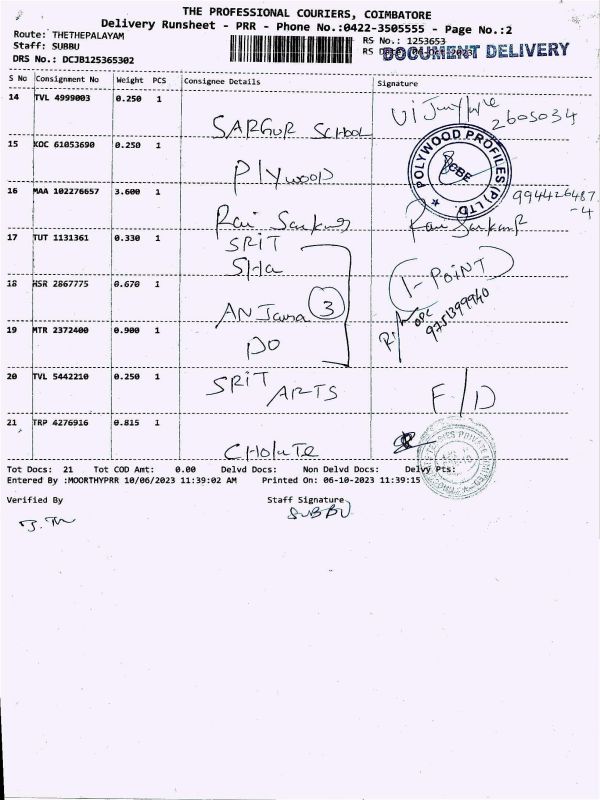 THE PROFESSIONAL COURIERS, COIMBATORE
Delivery Runsheet - PRR - Phone No.:0422-3505555 - Page No.:2
Route: THETHEPALAYAM
RS No.: 1253653
Staff: SUBBU
RS Date: 06-Oct-2023
DOCUMENT DELIVERY
DRS No.: DCJB125365302
S No Consignment No Weight PCS Consignee Details Signature
14 TVL 4999003 0.250 1 SARGUR SCHOOL 2605034
15 KOC 61053690 0.250 1 Plywood
POLYWOOD PROFILES (P) LTD.
CBE
16 MAA 102276657 3.600 1 Rai Sankar 994426487
-4
17 TUT 1131361 0.330 1 SRIT
Sha
1-POINT
18 HSR 2867775 0.670 1 ANJana 3
9751399940
19 MTR 2372400 0.900 1 DO
20 TVL 5442210 0.250 1 SRIT ARTS F/D
21 TRP 4276916 0.815 1
Tot Docs: 21 Tot COD Amt: 0.00 Delvd Docs: Non Delvd Docs: Delvy Pts:
Entered By :MOORTHYPRR 10/06/2023 11:39:02 AM Printed On: 06-10-2023 11:39:15
Verified By Staff Signature
SUBBU